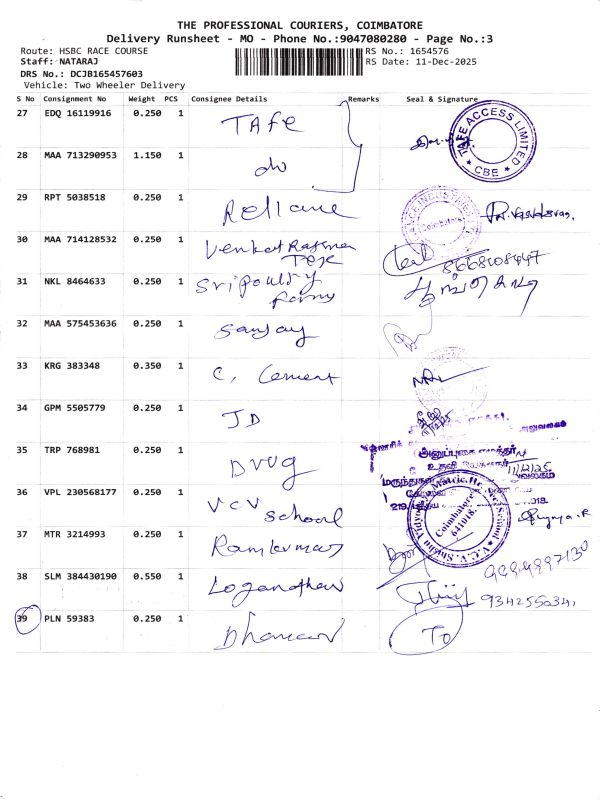 THE PROFESSIONAL COURIERS, COIMBATORE
Delivery Runsheet - MO - Phone No.:9047080280 - Page No.:3
Route: HSBC RACE COURSE
RS No.: 1654576
Staff: NATARAJ
RS Date: 11-Dec-2025
DRS No.: DCJB165457603
Vehicle: Two Wheeler Delivery
S No Consignment No Weight PCS Consignee Details Remarks Seal & Signature
27 EDQ 16119916 0.250 1 TAFE
TAFE ACCESS LIMITED
CBE
28 MAA 713290953 1.150 1 do
29 RPT 5038518 0.250 1 Reliance
Coimbatore
30 MAA 714128532 0.250 1 Venkat Rajma
Tex
8668108447
31 NKL 8464633 0.250 1 Sripoultry
Farms
32 MAA 575453636 0.250 1 Sanjay
33 KRG 383348 0.350 1 C, Cement
34 GPM 5505779 0.250 1 JD
35 TRP 768981 0.250 1 Drug
11/12/25
36 VPL 230568177 0.250 1 VCV
School
Coimbatore
641018
37 MTR 3214993 0.250 1 Ramkumar
9994997130
38 SLM 384430190 0.550 1 Loganathan
9342550341
39 PLN 59383 0.250 1
To